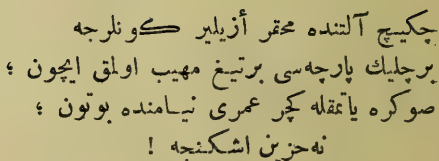 چكیچ آلتنده محقر أزیلیر كونلرجه
برچلیك پارچه‌سی برتیغ مهیب اولمق ایچون ؛
صوكره یاتمقله كچر عمری نیامنده بوتون ؛
نه‌حزین اشكنجه !